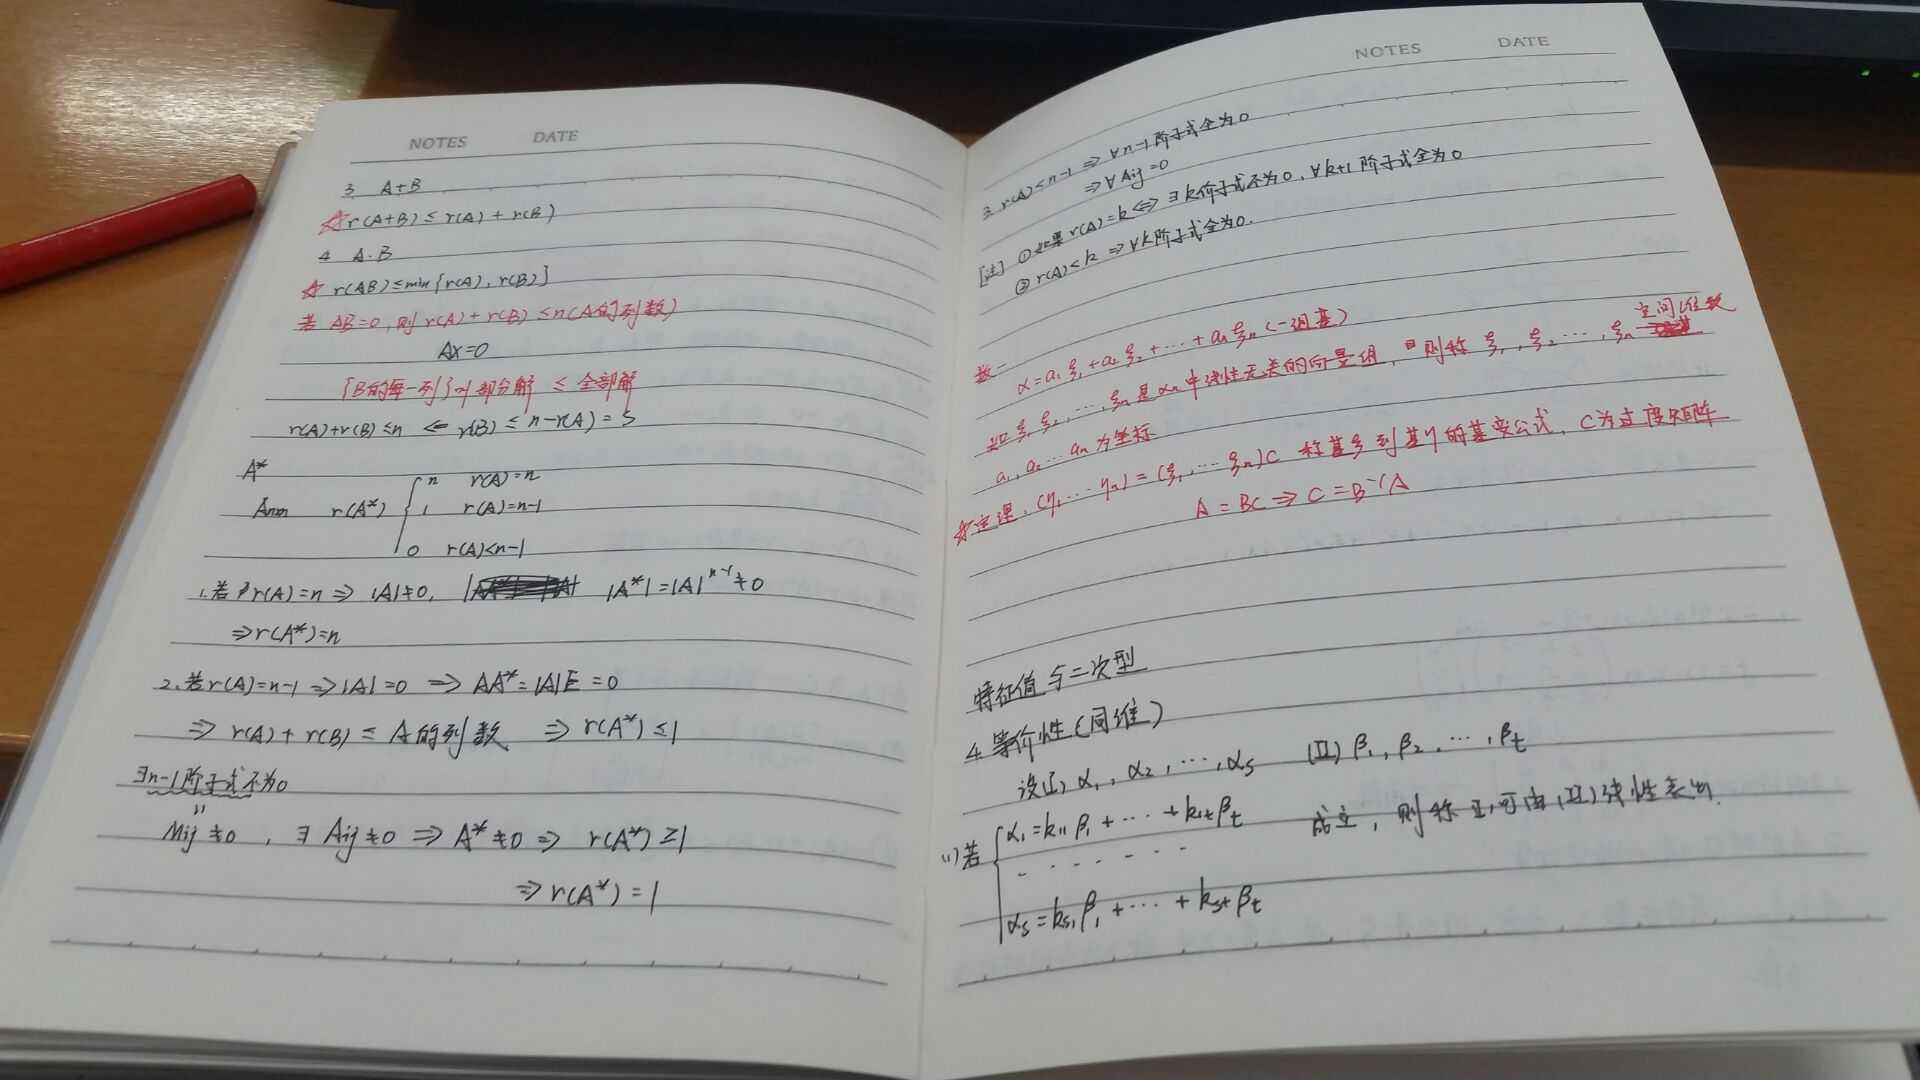 NOTES DATE
3. A+B
☆r(A+B)≤r(A)+r(B)
4 A·B
☆r(AB)≤min{r(A),r(B)}
若 AB=0,则 r(A)+r(B)≤n(A的列数)
Ax=0
{B的每一列}部分解 ≤ 全部解
r(A)+r(B)≤n ⇐ r(B)≤n-r(A)=S
A*
r(A*) { n r(A)=n
1 r(A)=n-1
0 r(A)<n-1
1.若r(A)=n ⇒ |A|≠0, |A*|=|A|^{n-1}≠0
⇒r(A*)=n
2.若r(A)=n-1 ⇒|A|=0 ⇒ AA*=|A|E=0
⇒ r(A)+r(B)≤ A的列数 ⇒ r(A*)≤1
∃n-1阶子式不为0
Mij≠0, ∃Aij≠0 ⇒ A*≠0 ⇒ r(A*)≥1
⇒r(A*)=1
NOTES DATE
3 r(A)<n-1 ⇒ ∀n-1阶子式全为0
⇒∀Aij=0
[注] ①如果r(A)=k⇔∃k阶子式不为0,∀k+1阶子式全为0
②r(A)<k ⇒∀k阶子式全为0.
空间维数
数一 α=a₁ξ₁+a₂ξ₂+⋯+aₙξₙ(一组基)
如ξ₁,ξ₂,⋯,ξₙ是αₙ中线性无关的向量组,则称ξ₁,ξ₂,⋯,ξₙ
a₁,a₂⋯aₙ为坐标
☆定理.(η₁⋯ηₙ)=(ξ₁,⋯ξₙ)C 称基ξ到基η的基变公式,C为过度矩阵
A=BC⇒C=B⁻¹A
特征值与二次型
4.等价性(同维)
设(I)α₁,α₂,⋯,αs (II)β₁,β₂,⋯,βt
(1)若{α₁=k₁₁β₁+⋯+k₁tβt 成立,则称I可由(II)线性表出.
- - - - - -
αs=ks₁β₁+⋯+kstβt